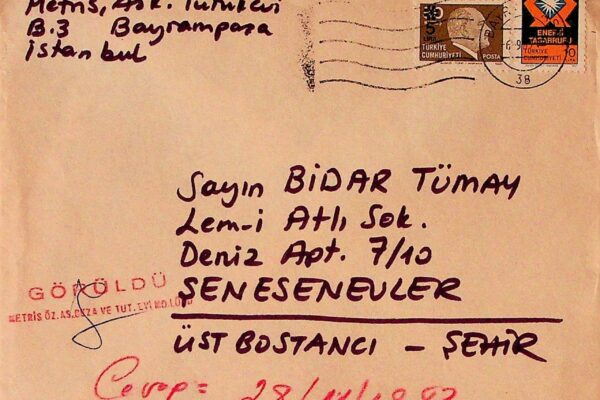 Metris, Ask. Tutukevi
B.3 Bayrampaşa
İstanbul
5
TÜRKİYE
CUMHURİYETİ POSTA
ENERJİ
TASARRUFU
TÜRKİYE
CUMHURİYETİ 10
38
Sayın BİDAR TÜMAY
Lem-i Atlı Sok.
Deniz Apt. 7/10
ŞENESENEVLER
ÜST BOSTANCI – ŞEHİR
GÖRÜLDÜ
METRİS ÖZ. AS. CEZA VE TUT. EVİ
Cevap=